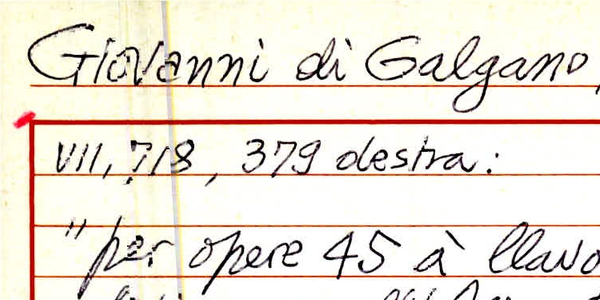 Giovanni di Galgano,
VII, 718, 379 destra:
"per opere 45 à llavo